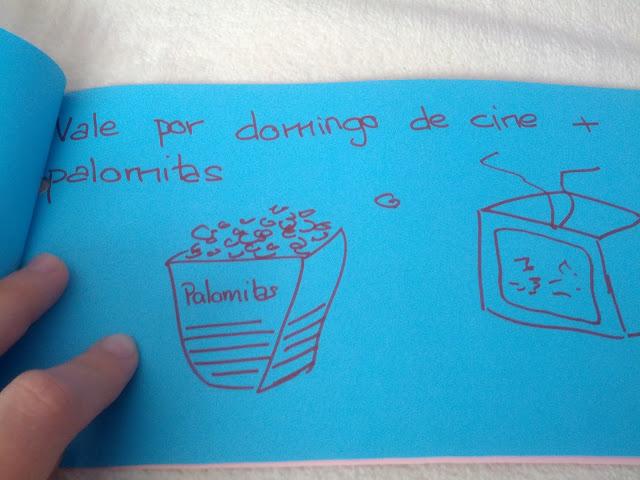 Vale por domingo de cine +
palomitas
Palomitas